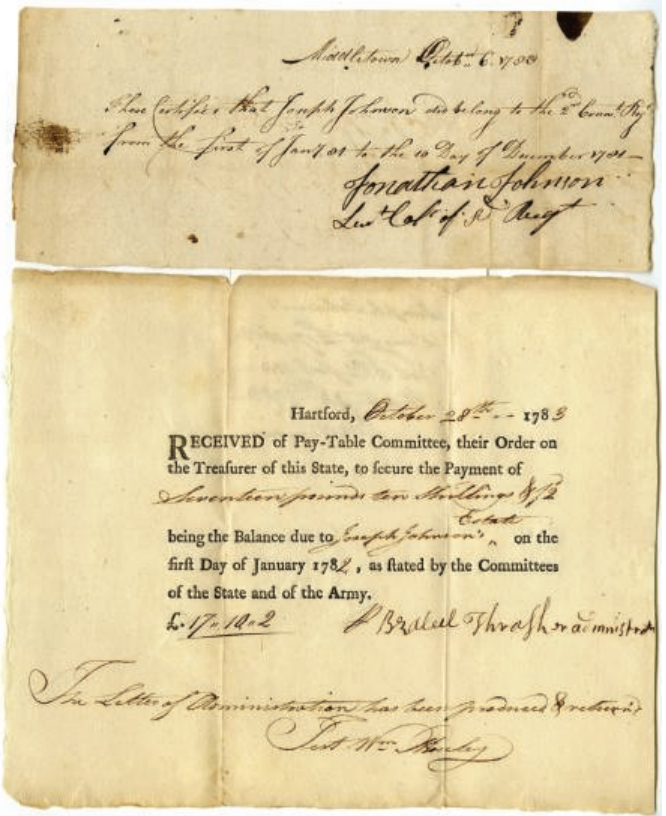 Middletown Octobr 6. 1783
These Certifies that Joseph Johnson did belong to the 2nd Connt. Regt
from the first of Jany. 81 to the 10 Day of December 1781 —
Jonathan Johnson
Leut Colo of sd Regt
Hartford, October 28th -- 1783
RECEIVED of Pay-Table Committee, their Order on
the Treasurer of this State, to secure the Payment of
Seventeen pounds ten Shillings &/2
Estate
being the Balance due to Joseph Johnson's " on the
first Day of January 1782, as stated by the Committees
of the State and of the Army.
£. 17 " 10 " 2
Thrasher administr
The Letter of Administration has been produced & returnd
Test Wm